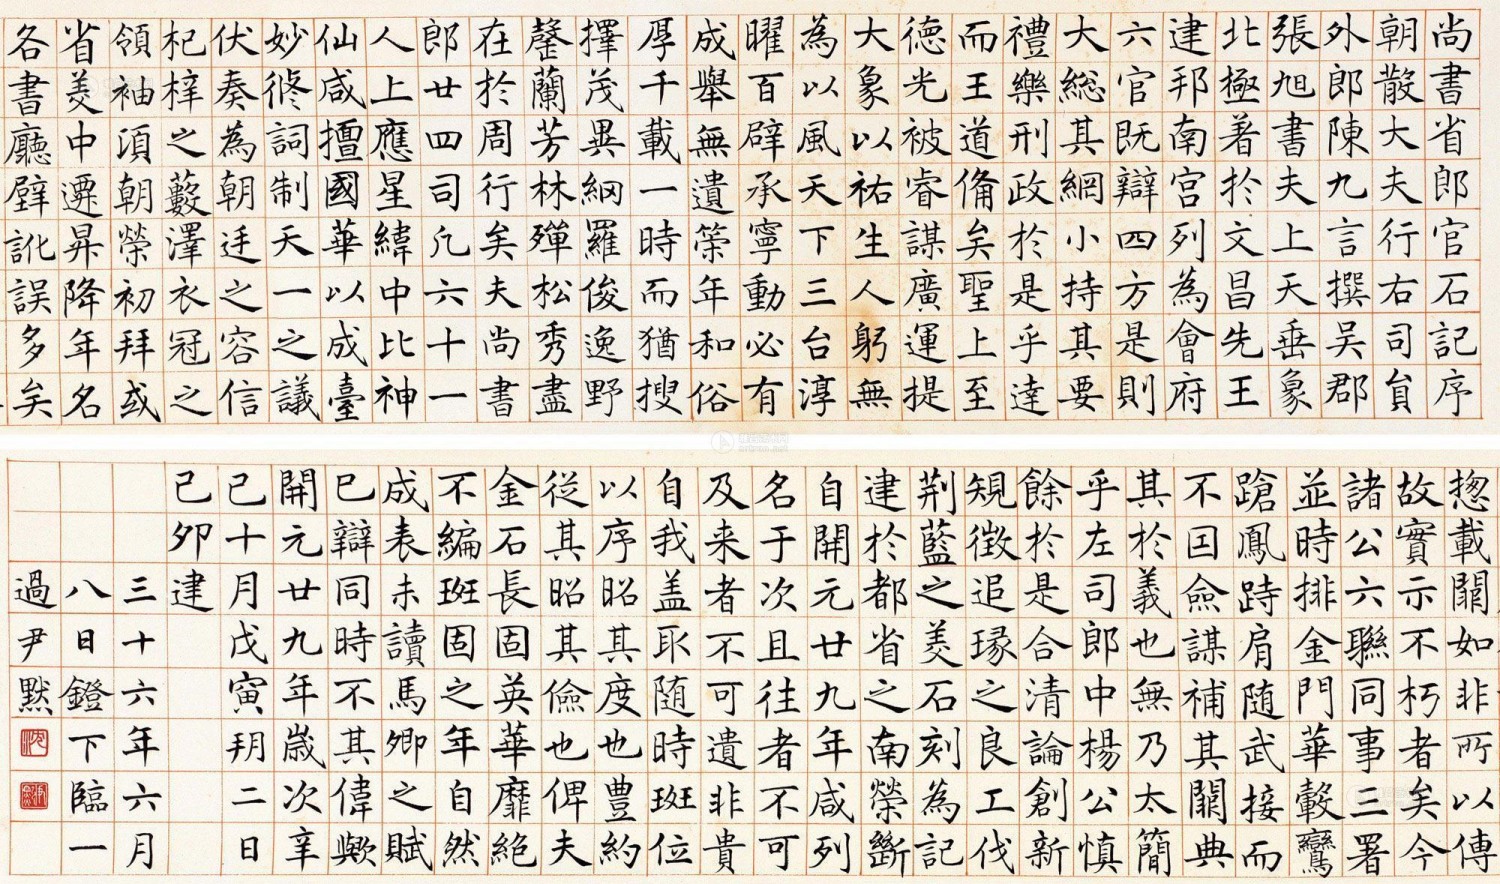 尚書省郎官石記序
朝散大夫行右司貟
外郎陳九言撰吴郡
張旭書夫上天垂象
北極著於文昌先王
建邦南宫列為會府
六官既辯四方是則
大總其綱小持其要
禮樂刑政於是乎達
而王道備矣聖上至
德光被睿謀廣運提
大象以祐生人躬無
為以風天下三台淳
曜百辟承寧動必有
成舉無遺筞年和俗
厚千載一時而猶搜
擇茂異網羅俊逸野
罄蘭芳林殫松秀盡
在於周行矣夫尚書
郎廿四司凢六十一
人上應星緯中比神
仙咸擅國華以成臺
妙脩詞制天一之議
伏奏為朝廷之容信
杞梓之藪澤衣冠之
領袖頃朝榮初拜或
省美中遷昇降年名
各書廳壁訛誤多矣
揔載闕如非所以傳
故實示不朽者矣今
諸公六聯同事三署
並時排金門華轂鸞
蹌鳳跱肩随武接而
不囙僉謀補其闕典
其於義也無乃太簡
乎左司郎中楊公慎
餘於是合清論創新
規徵追琢之良工伐
荆藍之美石刻為記
建於都省之南榮斷
自開元廿九年咸列
名于次且往者不可
及来者不可遺非貴
自我盖取随時班位
以序昭其度也豐約
從其昭其儉也俾夫
金石長固英華靡絕
不編班固之年自然
成表未讀馬卿之賦
已辯同時不其偉歟
開元廿九年歲次辛
己十月戊寅朔二日
己卯建
三十六年六月
八日鐙下臨一
過尹默